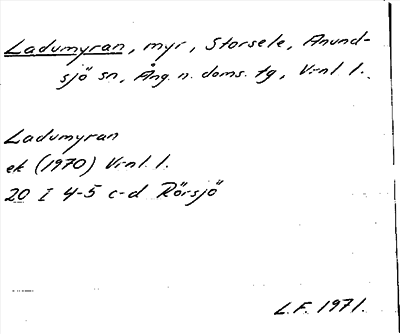 Ladumyran, myr, Storsele, Anund-
sjö sn, Ång. n. doms. tg, Vnl l.
Ladumyran
ek (1970) Vnl. l.
20 I 4-5 c-d Rörsjö
L.F. 1971.